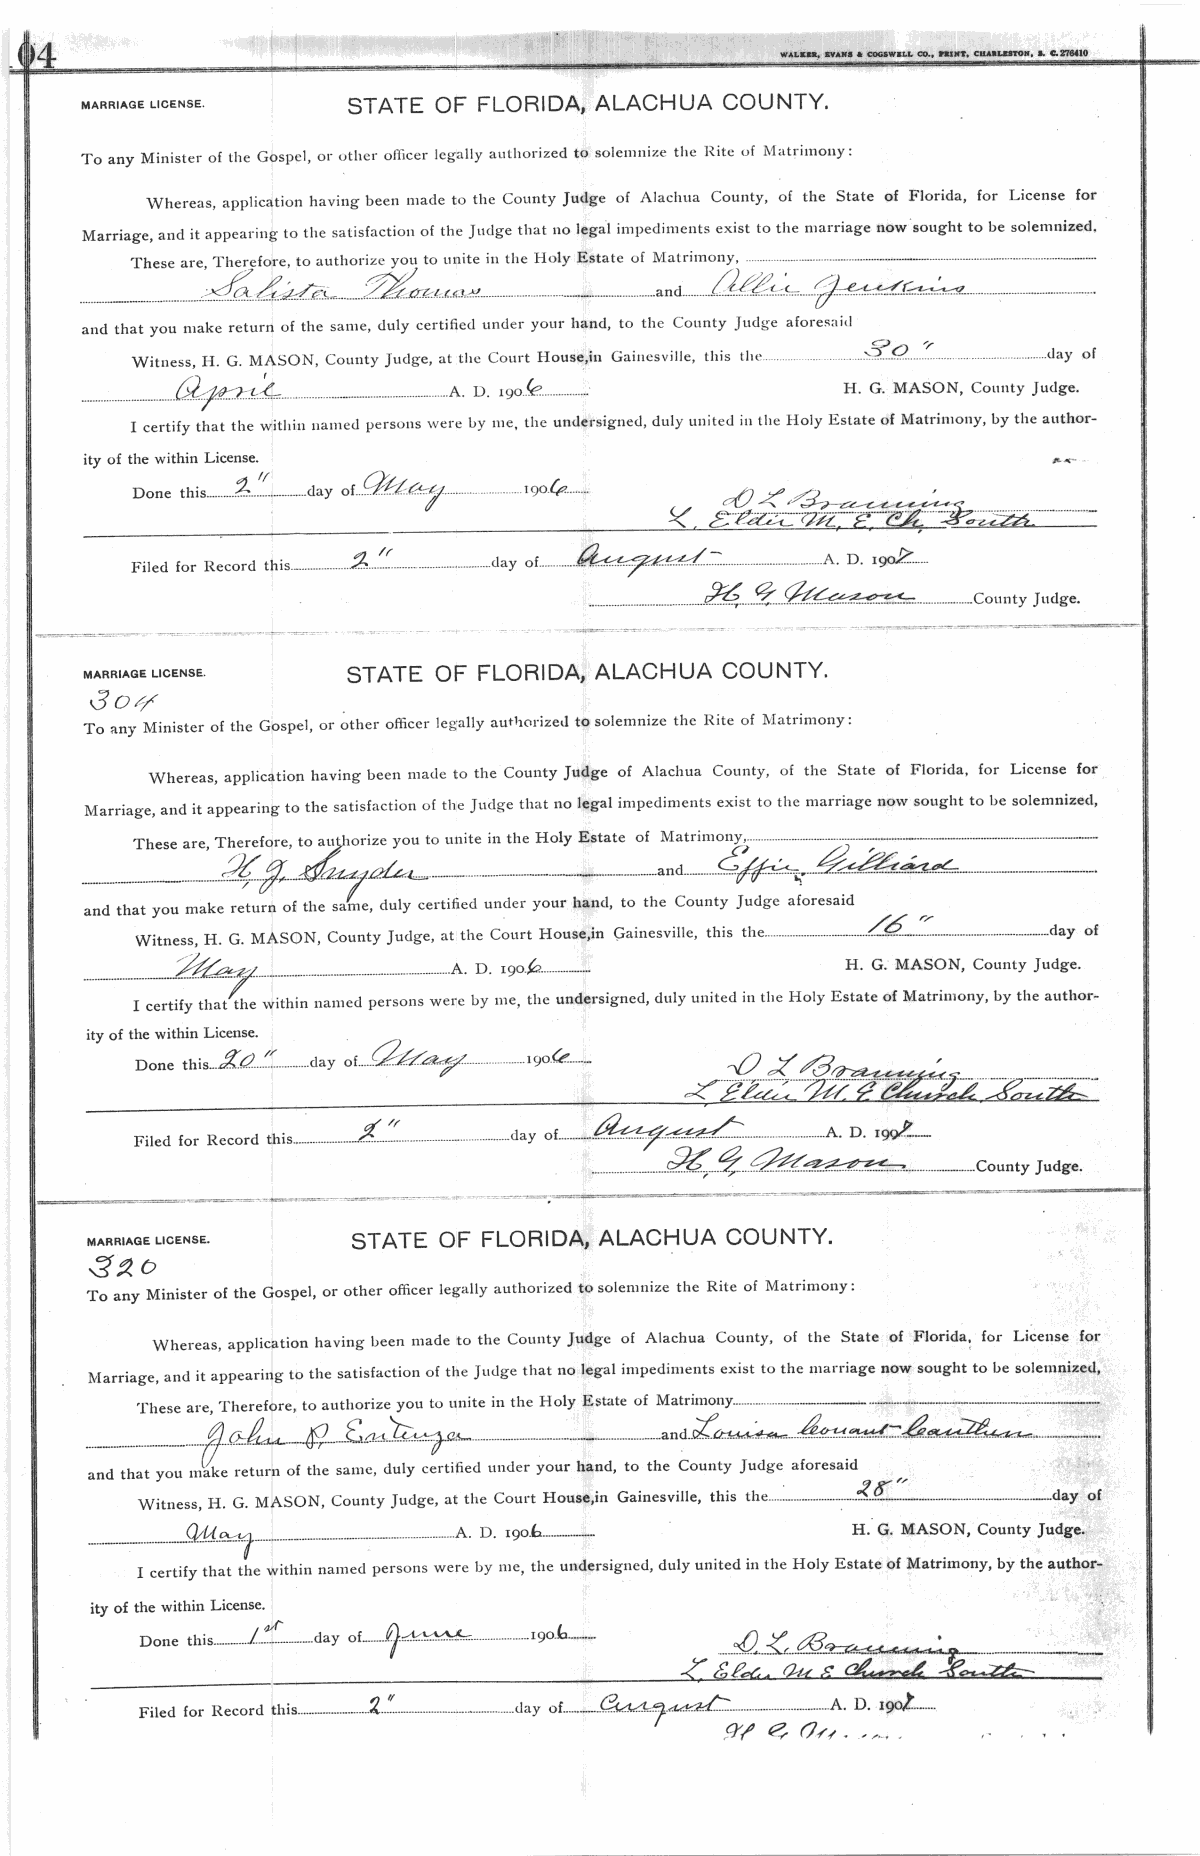 04
WALKER, EVANS & COGSWELL CO., PRINT, CHARLESTON, S. C. 276410
MARRIAGE LICENSE. STATE OF FLORIDA, ALACHUA COUNTY.
To any Minister of the Gospel, or other officer legally authorized to solemnize the Rite of Matrimony:
Whereas, application having been made to the County Judge of Alachua County, of the State of Florida, for License for
Marriage, and it appearing to the satisfaction of the Judge that no legal impediments exist to the marriage now sought to be solemnized,
These are, Therefore, to authorize you to unite in the Holy Estate of Matrimony,
Salista Thomas and Allie Jenkins
and that you make return of the same, duly certified under your hand, to the County Judge aforesaid
Witness, H. G. MASON, County Judge, at the Court House, in Gainesville, this the 30" day of
April A. D. 1906 H. G. MASON, County Judge.
I certify that the within named persons were by me, the undersigned, duly united in the Holy Estate of Matrimony, by the author-
ity of the within License.
Done this 2" day of May 1906
D L Branning
L. Elder M. E. Ch, South
Filed for Record this 2" day of August A. D. 1907
H. G. Mason County Judge.
MARRIAGE LICENSE. STATE OF FLORIDA, ALACHUA COUNTY.
304
To any Minister of the Gospel, or other officer legally authorized to solemnize the Rite of Matrimony:
Whereas, application having been made to the County Judge of Alachua County, of the State of Florida, for License for
Marriage, and it appearing to the satisfaction of the Judge that no legal impediments exist to the marriage now sought to be solemnized,
These are, Therefore, to authorize you to unite in the Holy Estate of Matrimony,
H. J. Snyder and Effie Gilliard
and that you make return of the same, duly certified under your hand, to the County Judge aforesaid
Witness, H. G. MASON, County Judge, at the Court House, in Gainesville, this the 16" day of
May A. D. 1906 H. G. MASON, County Judge.
I certify that the within named persons were by me, the undersigned, duly united in the Holy Estate of Matrimony, by the author-
ity of the within License.
Done this 20" day of May 1906
D L Branning
L. Elder M. E. Church South
Filed for Record this 2" day of August A. D. 1907
H. G. Mason County Judge.
MARRIAGE LICENSE. STATE OF FLORIDA, ALACHUA COUNTY.
320
To any Minister of the Gospel, or other officer legally authorized to solemnize the Rite of Matrimony:
Whereas, application having been made to the County Judge of Alachua County, of the State of Florida, for License for
Marriage, and it appearing to the satisfaction of the Judge that no legal impediments exist to the marriage now sought to be solemnized,
These are, Therefore, to authorize you to unite in the Holy Estate of Matrimony
John P. Entenza and Louisa Conant Cauthen
and that you make return of the same, duly certified under your hand, to the County Judge aforesaid
Witness, H. G. MASON, County Judge, at the Court House, in Gainesville, this the 28" day of
May A. D. 1906 H. G. MASON, County Judge.
I certify that the within named persons were by me, the undersigned, duly united in the Holy Estate of Matrimony, by the author-
ity of the within License.
Done this 1st day of June 1906
D. L. Branning
L. Elder M E Church South
Filed for Record this 2" day of August A. D. 1907
H G